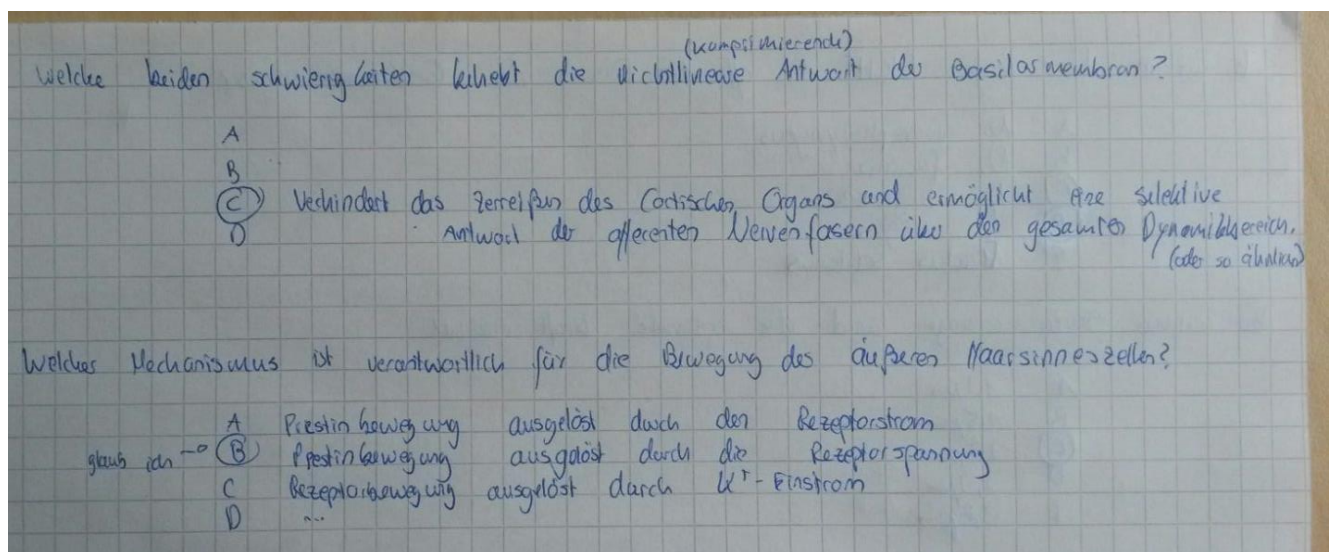 (komprimierende)
Welche beiden schwierigkeiten behebt die nichtlineare Antwort der Basilarmembran?
A
B
C Verhindert das Zerreißen des Cortischen Organs und ermöglicht eine selektive
D Antwort der afferenten Nervenfasern über den gesamten Dynamikbereich.
(oder so ähnlich)
Welcher Mechanismus ist verantwortlich für die Bewegung der äußeren Haarsinneszellen?
A Prestinbewegung ausgelöst durch den Rezeptorstrom
glaub ich → B Prestinbewegung ausgelöst durch die Rezeptorspannung
C Rezeptorbewegung ausgelöst durch K⁺-Einstrom
D ...